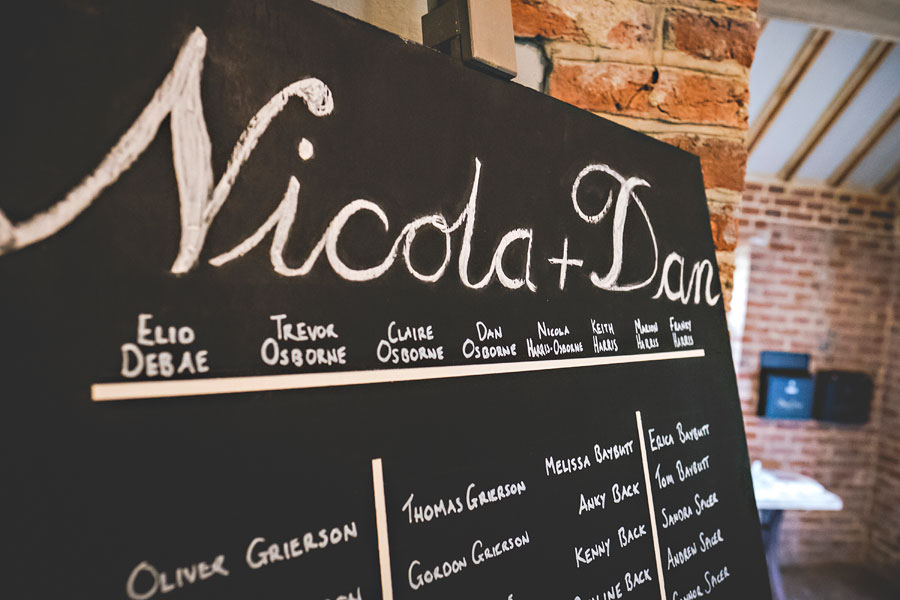 Nicola + Dan
Elio Debae
Trevor Osborne
Claire Osborne
Dan Osborne
Nicola Harris-Osborne
Keith Harris
Marion Harris
Francy Harris
Oliver Grierson
Thomas Grierson
Gordon Grierson
Melissa Baybutt
Anky Back
Kenny Back
Back
Erica Baybutt
Tom Baybutt
Sandra Spicer
Andrew Spicer
Connor Spicer